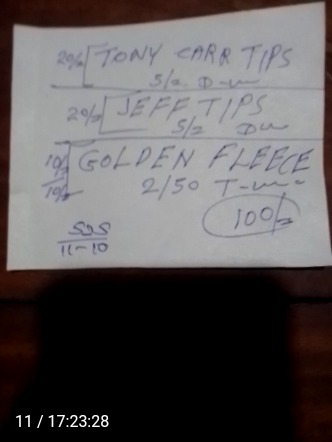 20/2 TONY CARR TIPS
5/2 D
20/2 JEFF TIPS
5/2 D
10/2 GOLDEN FLEECE
10/2 2/50 T
100/2
SOS
11-10
11 / 17:23:28